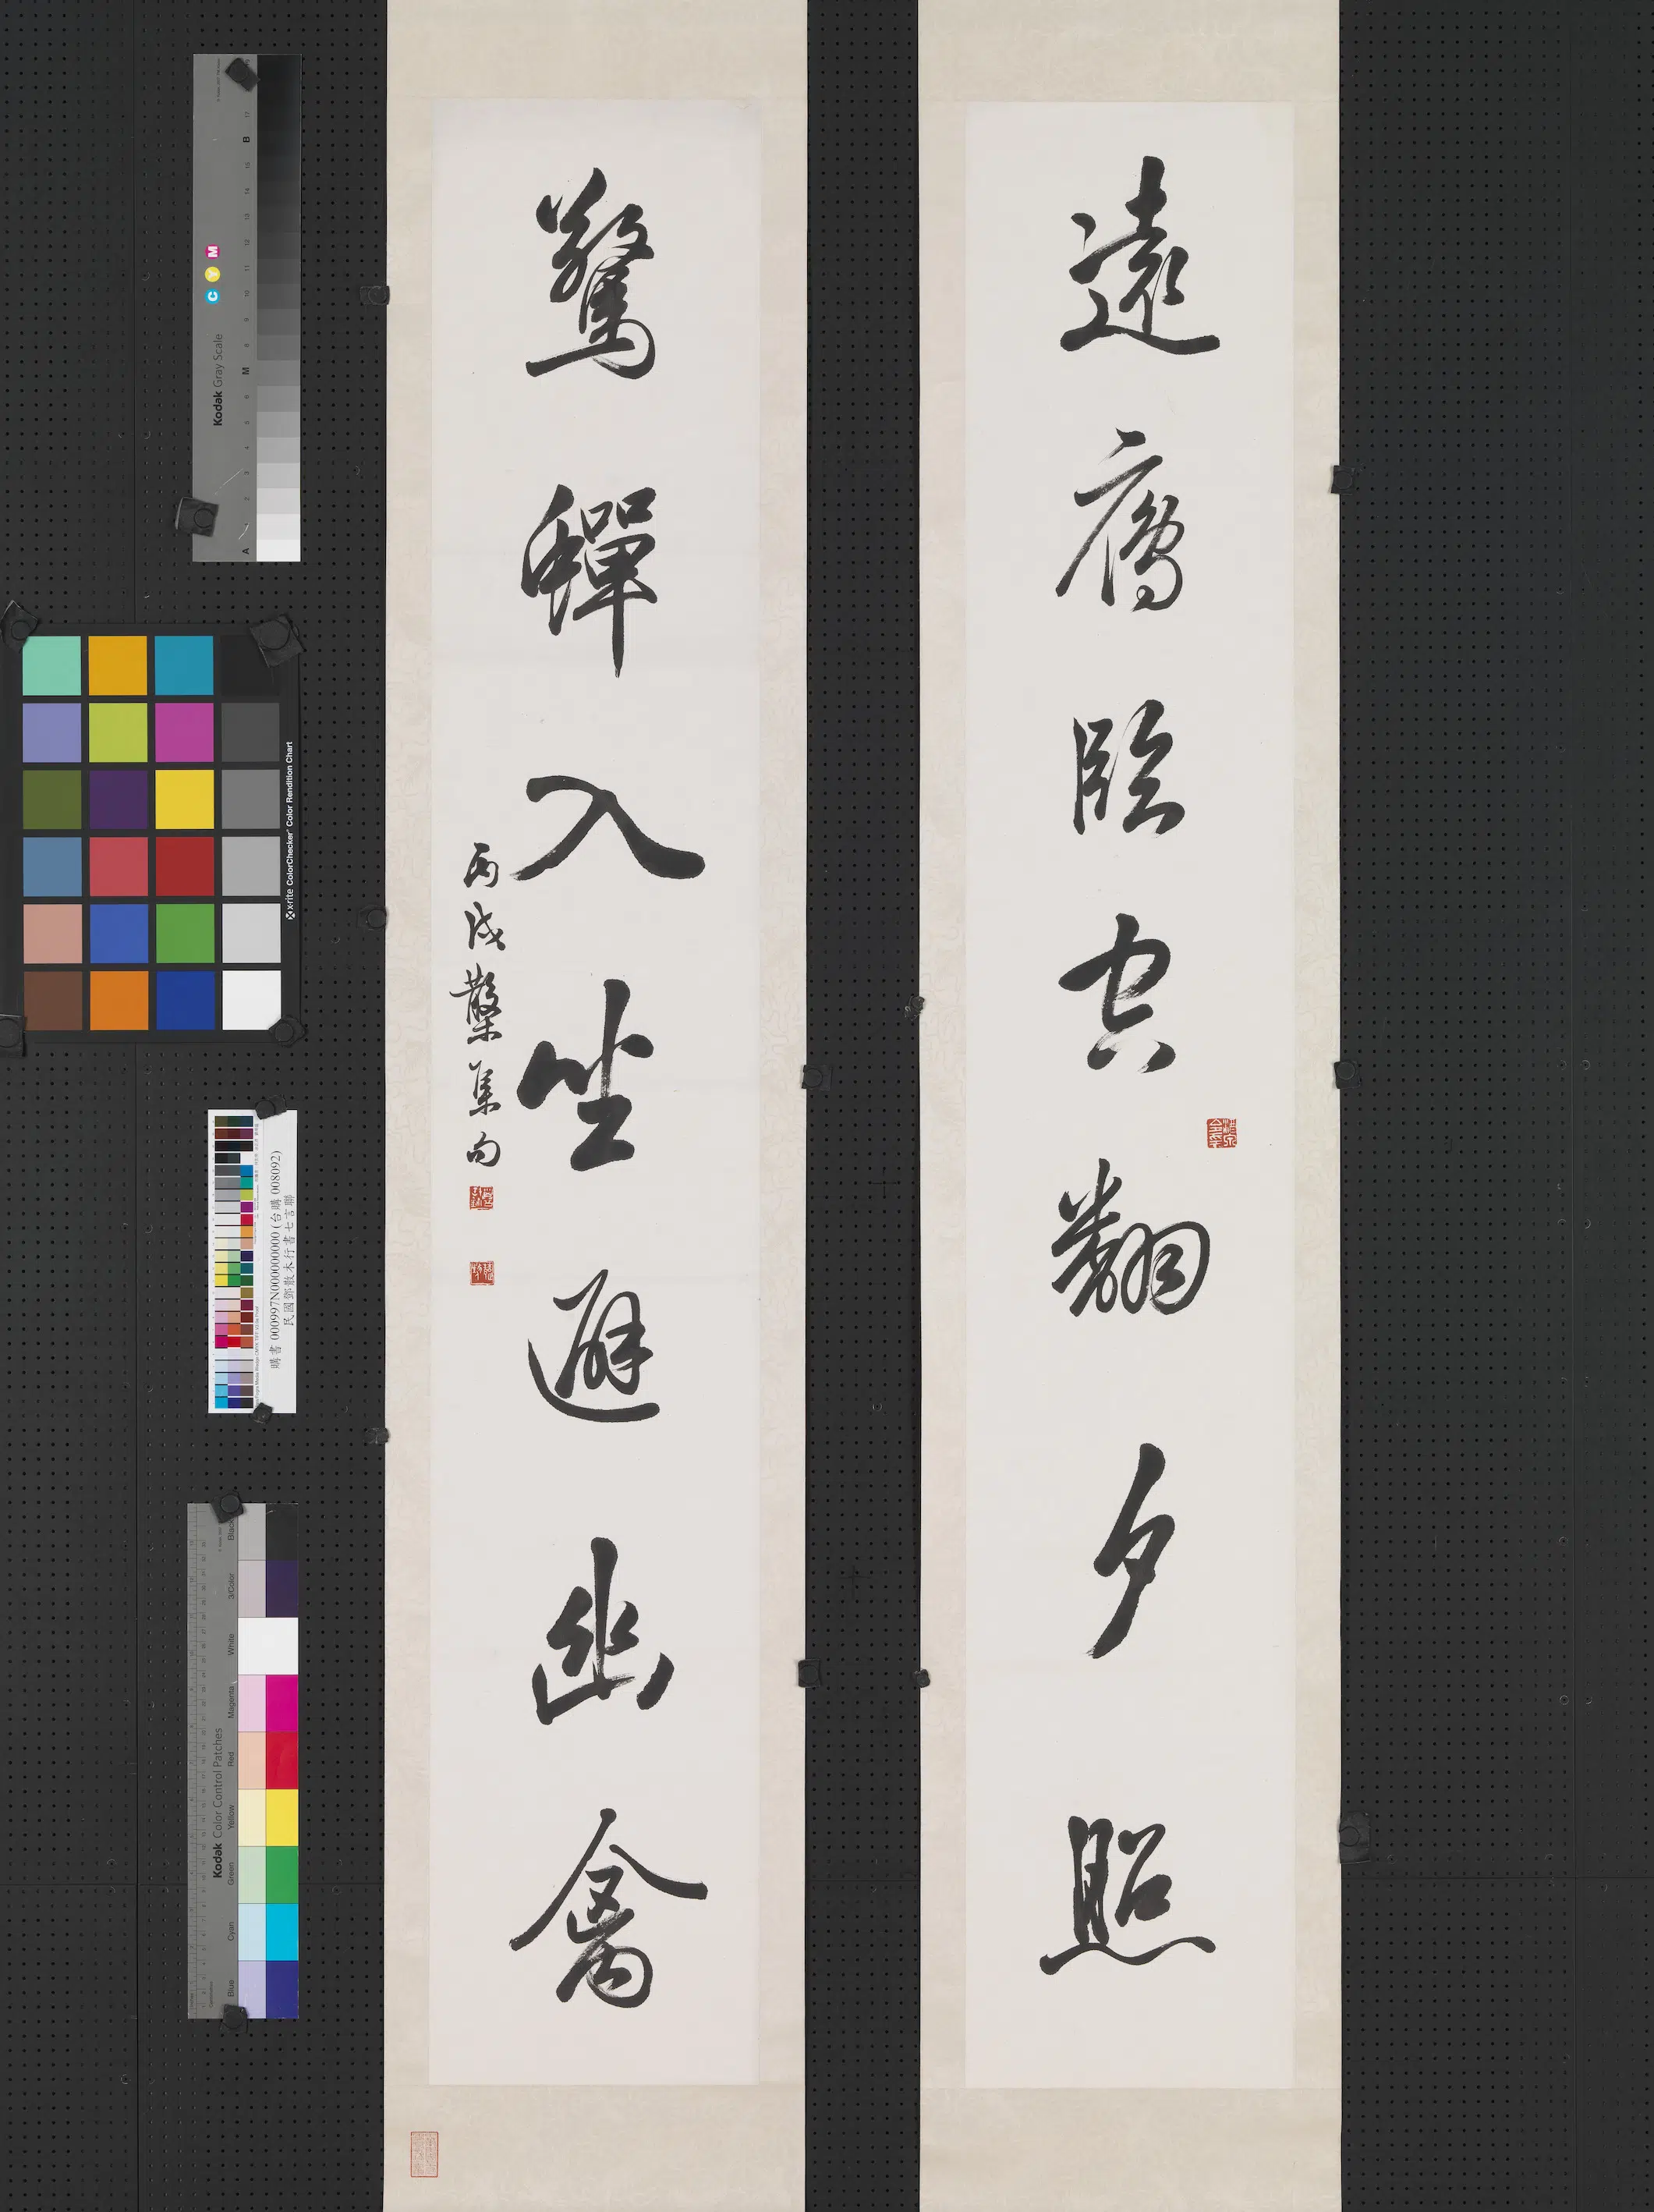 遠鴈臨空翻夕照
驚蟬入坐避幽禽
丙戌散木集句
Kodak Gray Scale
C Y M
A 1 2 3 4 5 6 M 8 9 10 11 12 13 14 15 B 17
x-rite ColorChecker Color Rendition Chart
購書 000997N000000000 (台購 008092)
民國鄧散木行書七言聯
Kodak Color Control Patches
Blue Cyan Green Yellow Red Magenta White 3/Color Black